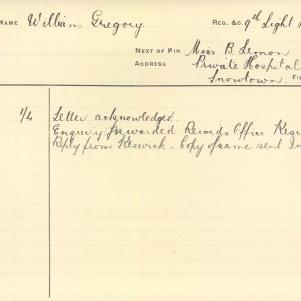 NAME William Gregory. REG. &C. 9th Light
NEXT OF KIN Miss B. Lemon
ADDRESS Private Hospital
Snowtown.
1/4 Letter acknowledged.
Enquiry forwarded Records Office
Reply from Keswick. Copy of same sent